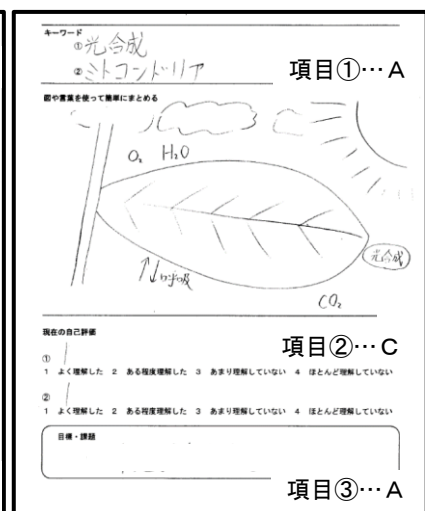 キーワード
①光合成
②ミトコンドリア
項目①…A
図や言葉を使って簡単にまとめる
O₂ H₂O
光合成
呼吸
CO₂
現在の自己評価
項目②…C
①
1 よく理解した 2 ある程度理解した 3 あまり理解していない 4 ほとんど理解していない
②
1 よく理解した 2 ある程度理解した 3 あまり理解していない 4 ほとんど理解していない
目標・課題
項目③…A